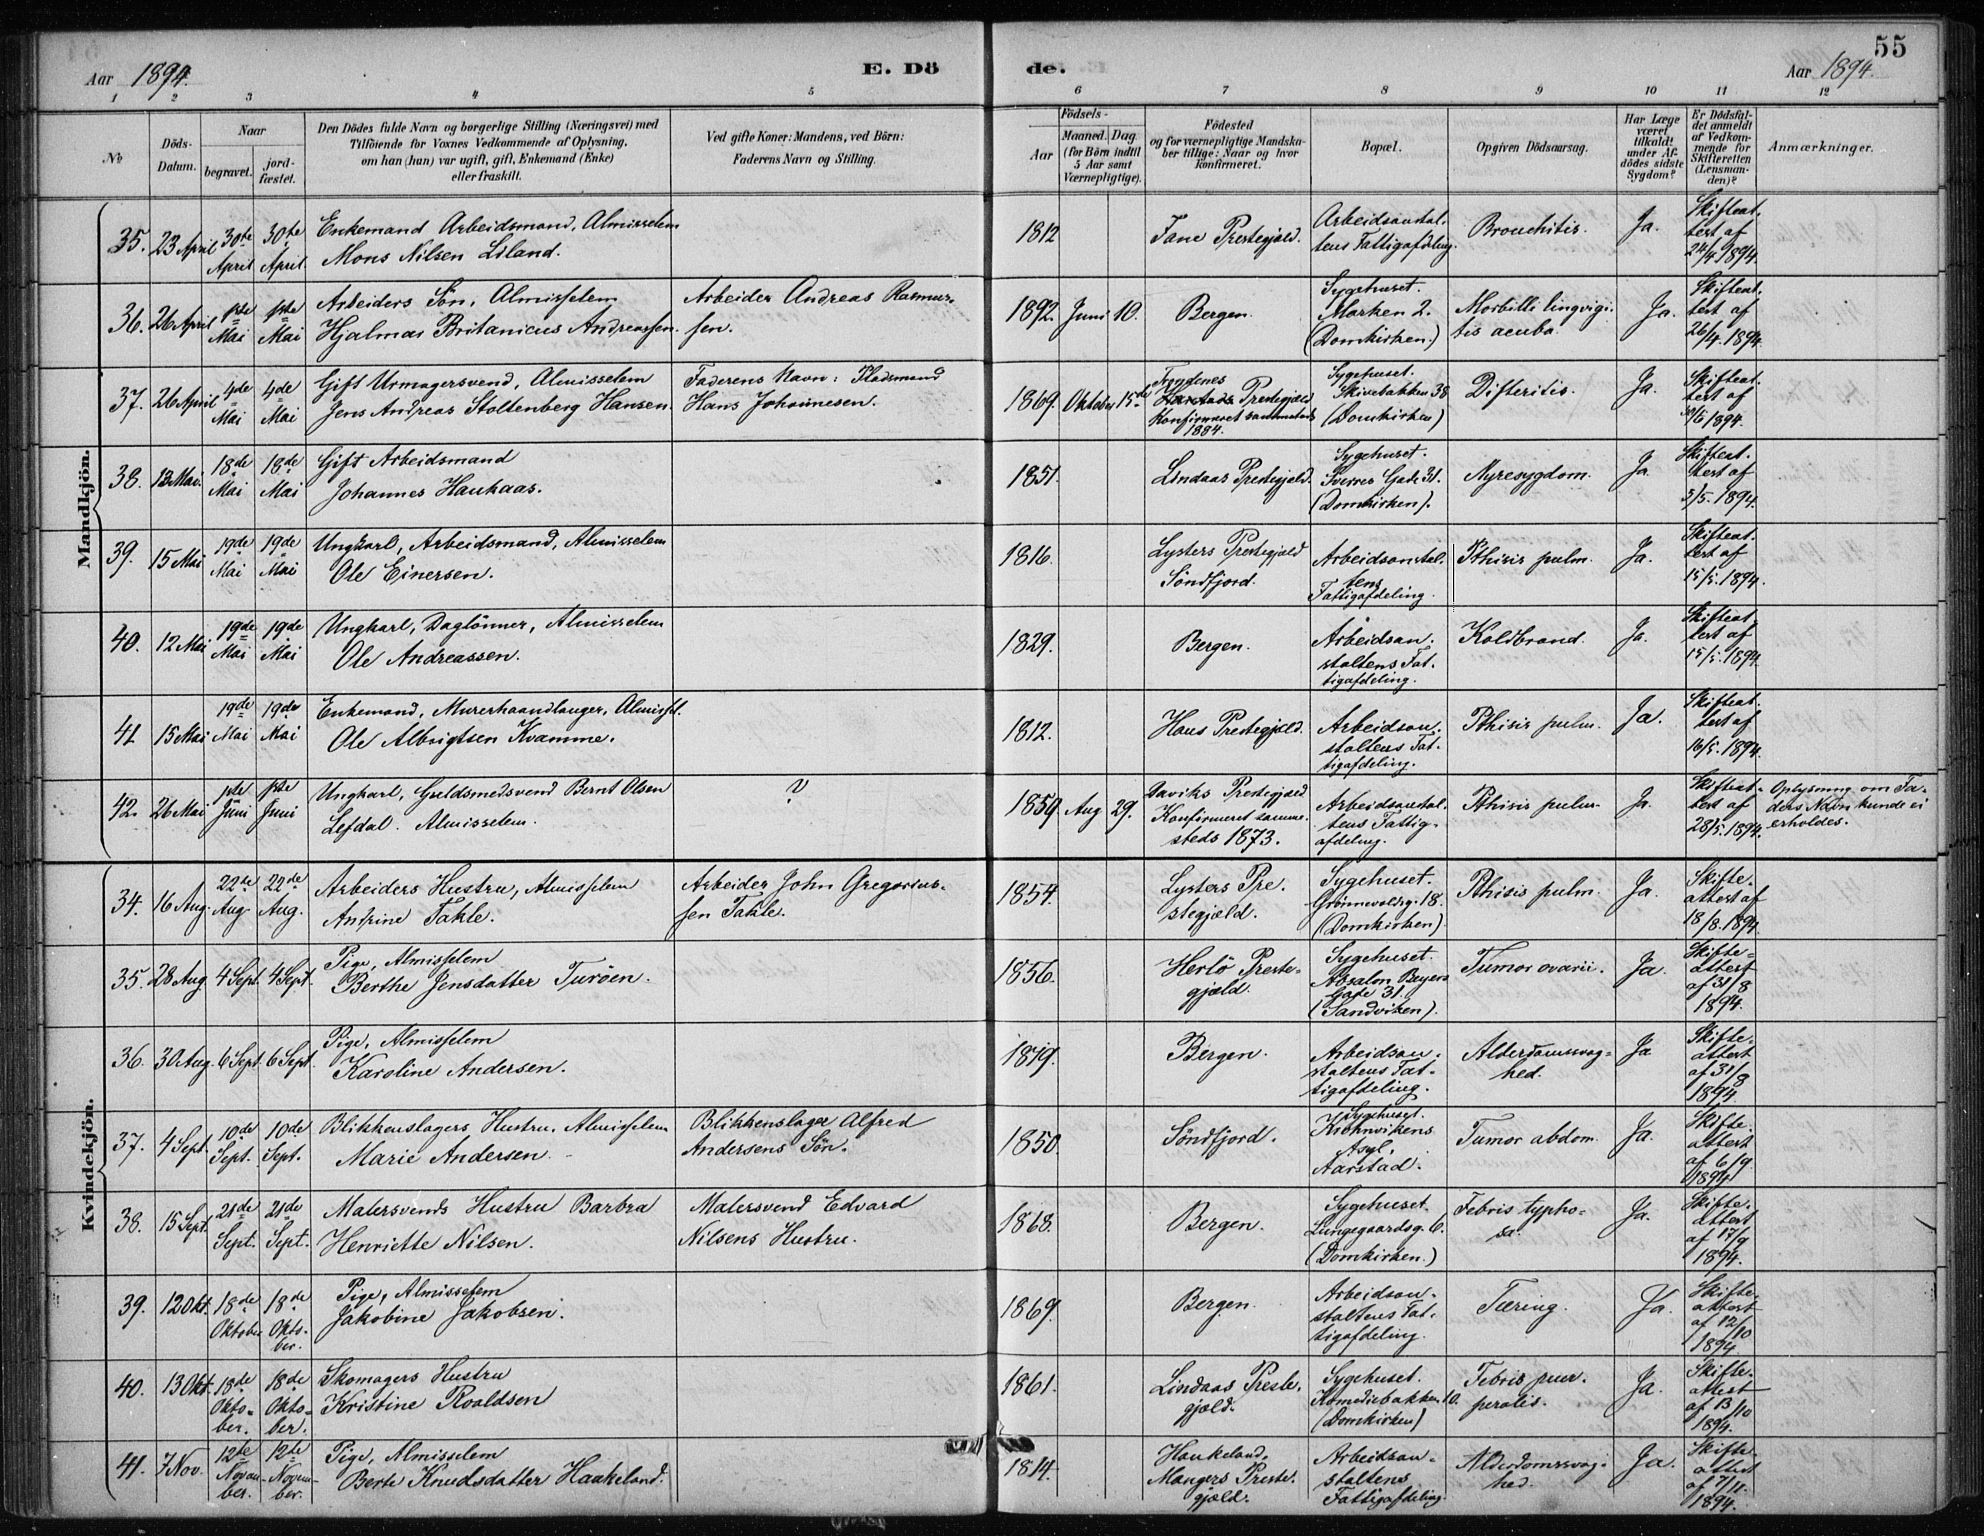 55
Aar 1894. E. Dö de. Aar 1894.
1 2 3 4 5 6 7 8 9 10 11 12
№ Döds-Datum. Naar begravet. jordfæstet. Den Dödes fulde Navn og borgerlige Stilling (Næringsvei) med Tilföiende for Voxnes Vedkommende af Oplysning, om han (hun) var ugift, gift, Enkemand (Enke) eller fraskilt. Ved gifte Koner: Mandens, ved Börn: Faderens Navn og Stilling. Födsels- Aar Maaned. Dag. (for Börn indtil 5 Aar samt Værnepligtige). Födested og for værnepligtige Mandskaber tillige: Naar og hvor konfirmeret. Bopæl. Opgiven Dödsaarsag. Har Læge været tilkaldt under Afdödes sidste Sygdom? Er Dödsfaldet anmeldt af Vedkommende for Skifteretten (Lensmanden)? Anmærkninger.
Mandkjön.
35. 23 April 30te April 30te April Enkemand Arbeidsmand, Almisselem Mons Nilsen Liland. 1812 Fane Prestegjæld. Arbeidsanstaltens Fattigafdeling. Bronchitis. Ja. Skifteattest af 24/4 1894.
36. 26 April 1ste Mai 1ste Mai Arbeiders Sön, Almisselem Hjalmar Britanicus Andreassen. Arbeider Andreas Rasmussen. 1892. Juni 10. Bergen. Sygehuset. Marken 2. (Domkirken.) Morbilli lingvigitis acuba. Ja. Skifteattest af 26/4. 1894.
37. 26 April 4de Mai 4de Mai Gift Urmagersvend, Almisselem Jens Andreas Stoltenberg Hansen. Faderens Navn: Pladsmand Hans Johannesen. 1869. Oktober 15de Trondenes Prestegjæld Konfirmeret sammesteds 1884. Sygehuset. Skivebakken 38 (Domkirken) Difteritis. Ja. Skifteattest af 1894.
38. 13 Mai. 18de Mai 18de Mai Gift Arbeidsmand Johannes Haukaas. 1851. Lindaas Prestegjæld. Sygehuset. Sverres Gade 31. (Domkirken). Nyresygdom. Ja Skifteattest af 5/5. 1894.
39. 15 Mai 19de Mai 19de Mai Ungkarl, Arbeidsmand, Almisselem Ole Einersen. 1816. Lysters Prestegjæld Söndfjord. Arbeidsanstaltens Fattigafdeling. Pthisis pulm. Ja. Skifteattest af 15/5. 1894.
40. 12 Mai 19de Mai 19de Mai Ungkarl, Daglönner, Almisselem Ole Andreassen. 1829. Bergen. Arbeidsanstaltens Fattigafdeling. Koldbrand. Ja. Skifteattest af 15/5. 1894.
41 15 Mai 19de Mai 19de Mai Enkemand, Murerhaandlanger, Almissel. Ole Albrigtsen Kvamme. 1812. Haus Prestegjæld. Arbeidsanstaltens Fattigafdeling. Pthisis pulm. Ja. Skifteattest af 16/5. 1894.
42. 26 Mai 1ste Juni 1ste Juni Ungkarl, Guldsmedsvend Bernt Olsen Lefdal. Almisselem. ? 1859. Aug 29. Daviks Prestegjæld Konfirmeret sammesteds 1873. Arbeidsanstaltens Fattigafdeling. Pthisis pulm. Ja. Skifteattest af 28/5. 1894. Oplysning om Faders Navn kunde ei erholdes.
Kvindekjön.
34. 16 Aug. 22de Aug. 22de Aug. Arbeiders Hustru, Almisselem Andrine Takle. Arbeider John Gregoriussen Takle. 1854. Lysters Prestegjæld. Sygehuset. Grönnevoldsg. 18. (Domkirken) Pthisis pulm. Ja. Skifteattest af 18/8. 1894.
35. 28 Aug. 4 Sept. 4 Sept. Pige, Almisselem Berthe Jensdatter Turöen. 1856. Herlö Prestegjæld. Sygehuset. Absalon Beyers Gade 31. (Sandviken). Tumor ovarii. Ja. Skifteattest af 31/8 1894.
36. 30 Aug. 6 Sept. 6 Sept. Pige, Almisselem Karoline Andersen. 1819. Bergen. Arbeidsanstaltens Fattigafdeling. Alderdomssvaghed. Ja Skifteattest af 31/8 1894
37. 4 Sept. 10de Sept. 10de Sept. Blikkenslagers Hustru, Almisselem Marie Andersen. Blikkenslager Alfred Andersens Sön. 1850. Söndfjord. Sygehuset. Krohnvikens Asyl, Aarstad. Tumor abdom. Ja. Skifteattest af 6/9 1894
38. 15 Sept. 21de Sept. 21de Sept. Malersvends Hustru Barbra Henriette Nilsen. Malersvend Edvard Nilsens Hustru. 1868. Bergen. Sygehuset. Lungegaardsg. 6. (Domkirken.) Febris typhosa. Ja. Skifteattest af 17/9 1894.
39. 12 Okt. 18de Oktober 18de Oktober. Pige, Almisselem Jakobine Jakobsen. 1869. Bergen. Arbeidsanstaltens Fattigafdeling. Tæring. Ja. Skifteattest af 12/10 1894
40. 13 Okt. 18de Oktober. 18de Oktober. Skomagers Hustru Kristine Roaldsen 1861. Lindaas Prestegjæld. Sygehuset. Komediebakken 10. (Domkirken) Febris puerperalis. Ja. Skifteattest af 13/10 1894.
41. 7 Nov. 12te November. 12te November. Pige, Almisselem Berte Knudsdatter Haukeland. 1814. Haukeland, Mangers Prestegjæld. Arbeidsanstaltens Fattigafdeling. Alderdomssvaghed. Ja. Skifteattest af 7/11. 1894.